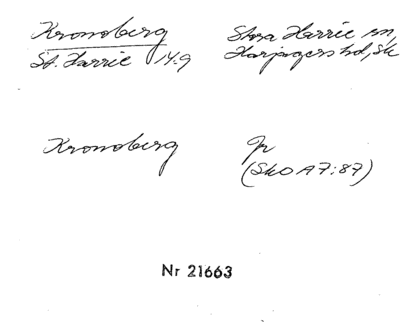 Kronoberg
Stora Harrie sn,
St. Harrie 14:9
Harjagers hd, Sk
Kronoberg
Gr
(SkO A7:87)
Nr 21663